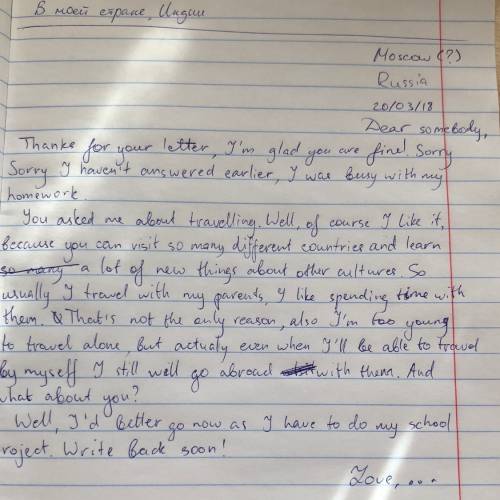 В моей стране, Индии
Moscow (?)
Russia
20/03/18
Dear somebody,
Thanks for your letter, I'm glad you are fine! Sorry
Sorry I haven't answered earlier, I was busy with my
homework.
You asked me about travelling. Well, of course I like it,
because you can visit so many different countries and learn
so many a lot of new things about other cultures. So
usually I travel with my parents, I like spending time with
them. That's not the only reason, also I'm too young
to travel alone, but actualy even when I'll be able to travel
by myself I still well go abroad with them. And
what about you?
Well, I'd better go now as I have to do my school
roject. Write back soon!
Love, ...